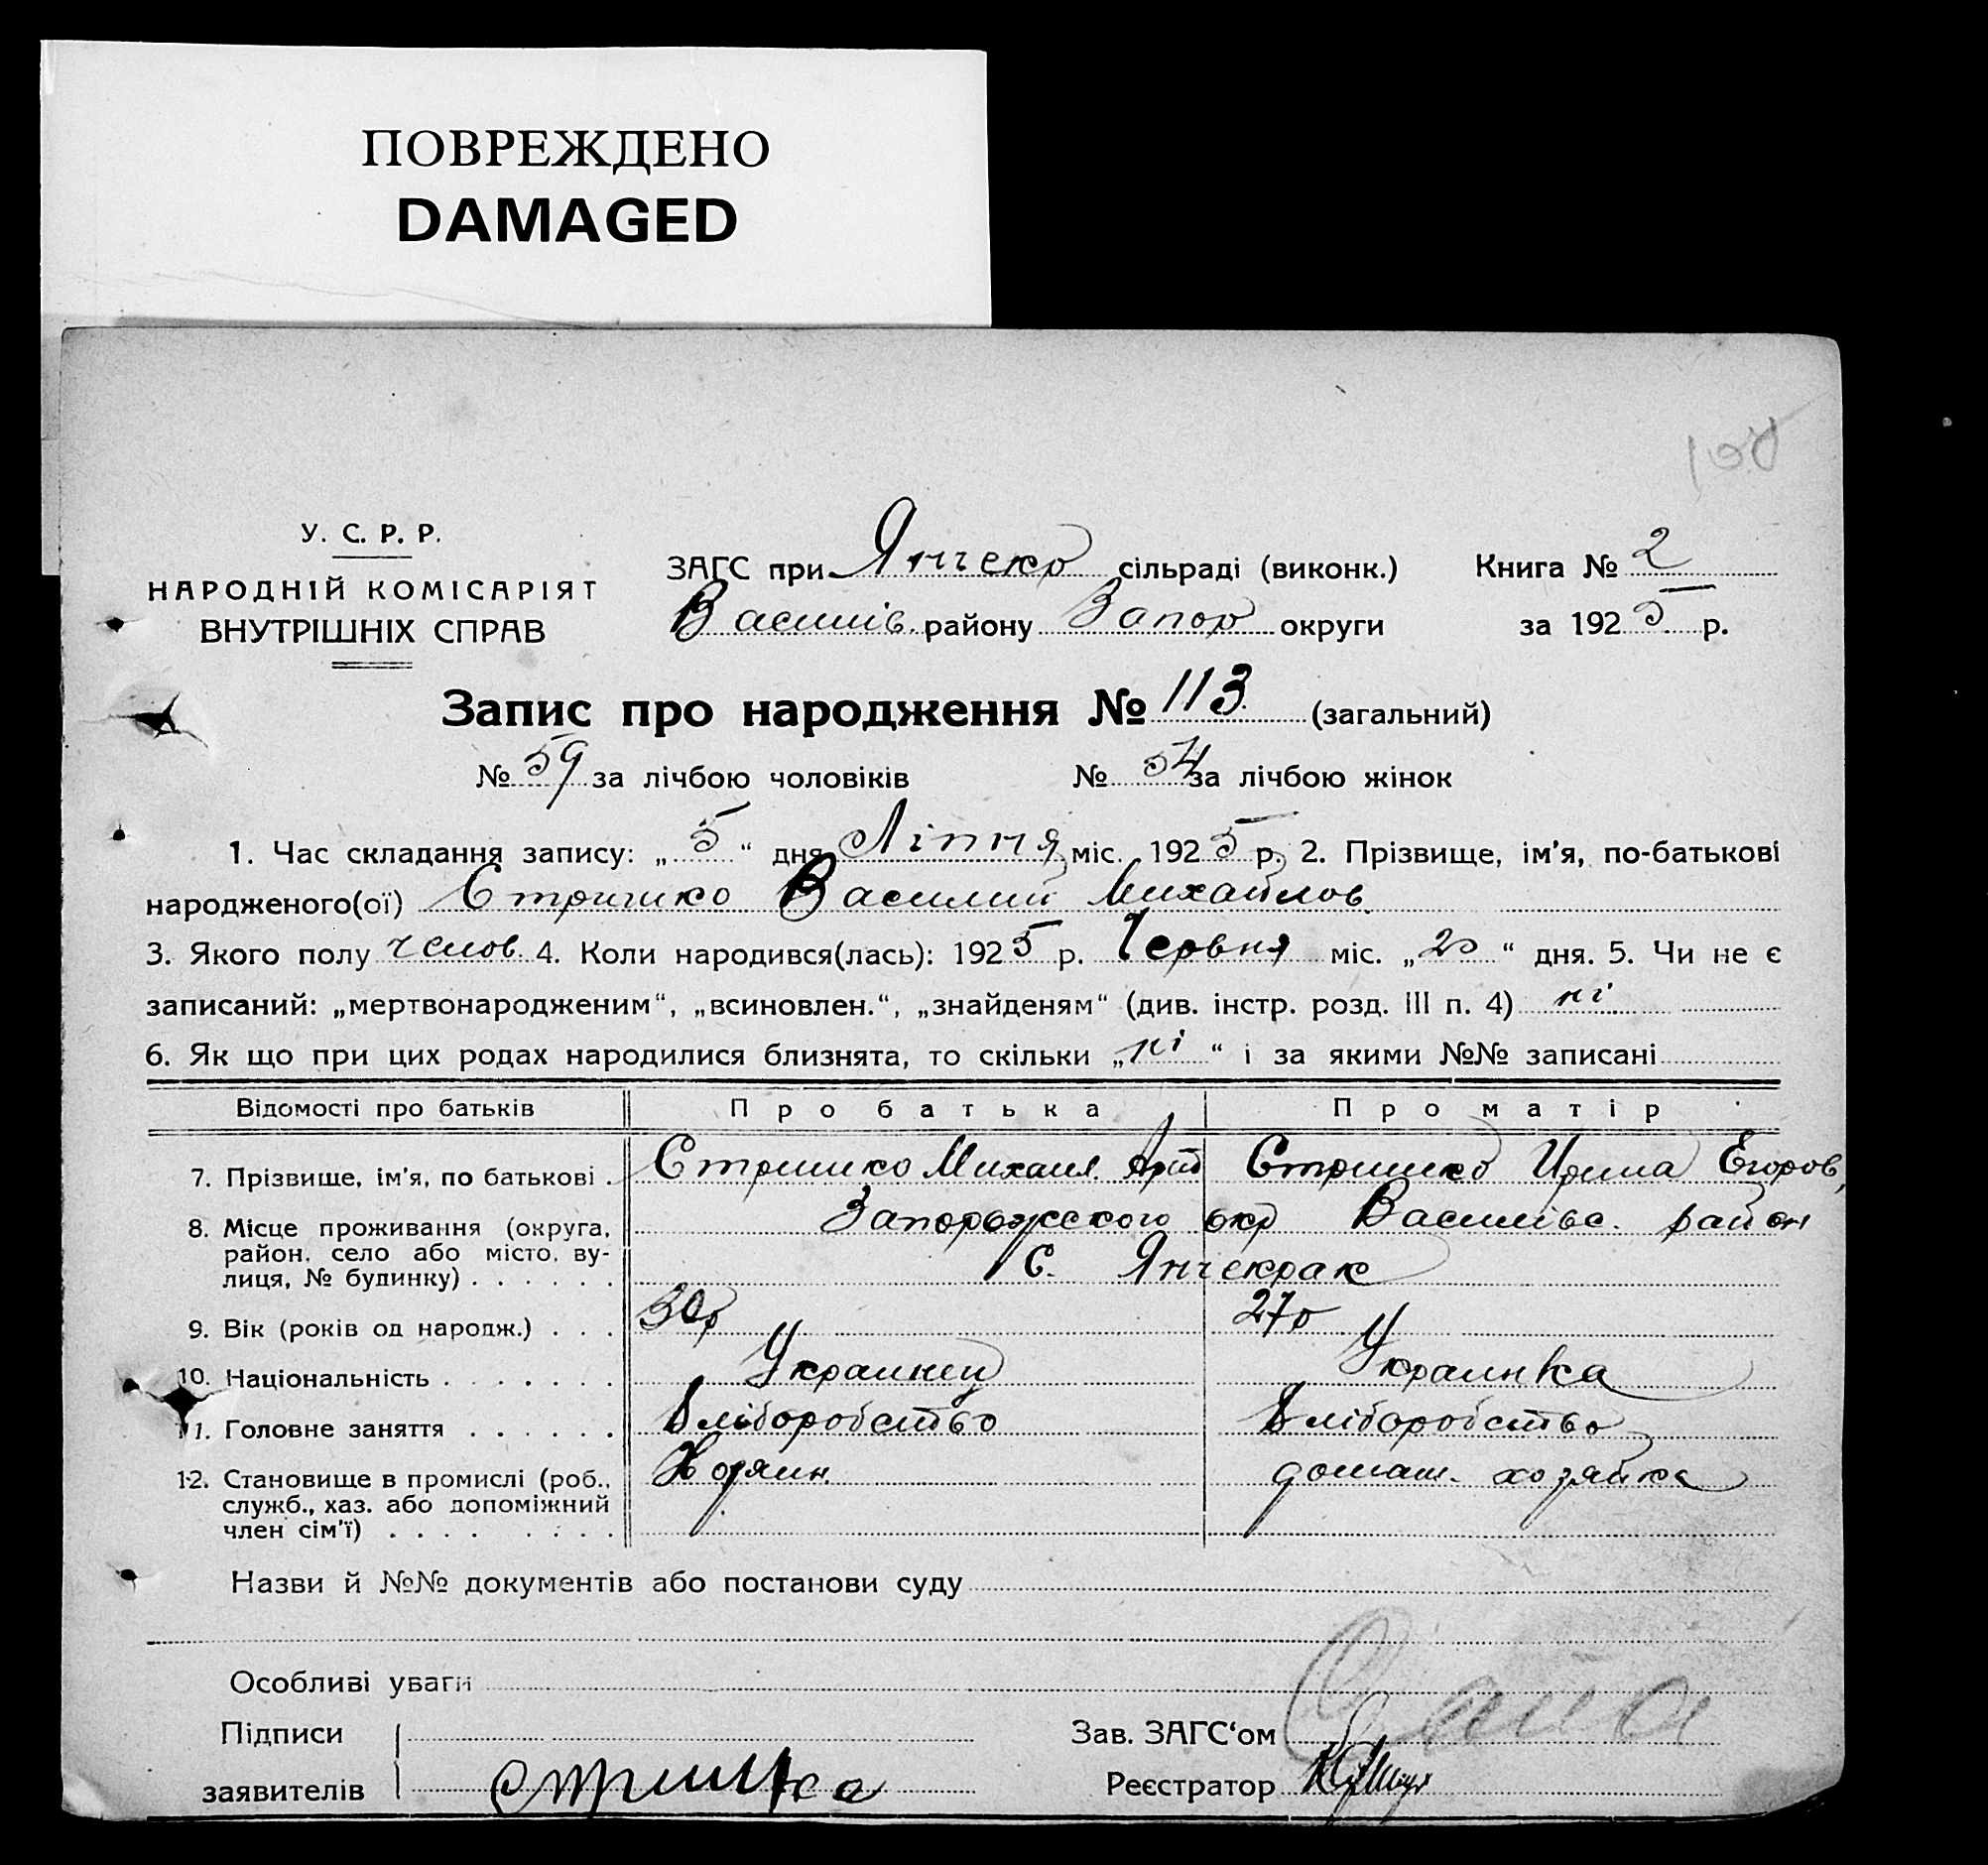 ПОВРЕЖДЕНО
DAMAGED
У. С. Р. Р.
НАРОДНІЙ КОМІСАРІЯТ
ВНУТРІШНІХ СПРАВ
ЗАГС при Янчекр сільраді (виконк.) Книга № 2
Василів. району Запор округи за 1925 р.
Запис про народження № 113 (загальний)
№ 59 за лічбою чоловіків № 54 за лічбою жінок
1. Час складання запису: „5“ дня Ліпня міс. 1925 р. 2. Прізвище, ім’я, по-батькові
народженого(ої) Стришко Василий Михайлов
3. Якого полу челов. 4. Коли народився(лась): 1925 р. Червня міс. „20“ дня. 5. Чи не є
записаний: „мертвонародженим“, „всиновлен.“, „знайденям“ (див. інстр. розд. III п. 4) ні
6. Як що при цих родах народилися близнята, то скільки „ні“ і за якими №№ записані
Відомості про батьків Про батька Про матір
7. Прізвище, ім’я, по батькові . Стришко Михаил Стришко Ирина Егоров,
8. Місце проживання (округа, Запорожского окр Василівс. район
район, село або місто, ву-
лиця, № будинку) . . . . . . с. Янчекрак
9. Вік (років од народж.) . . . 30р 27р
10. Національність . . . . . . . Украинец Украинка
11. Головне заняття . . . . . . Хліборобство Хліборобство
12. Становище в промислі (роб., Хозяин домаш. хозяйка
служб., хаз. або допоміжний
член сім’ї) . . . . . . . .
Назви й №№ документів або постанови суду
Особливі уваги
Підписи Зав. ЗАГС‘ом
заявителів Стришко Реєстратор